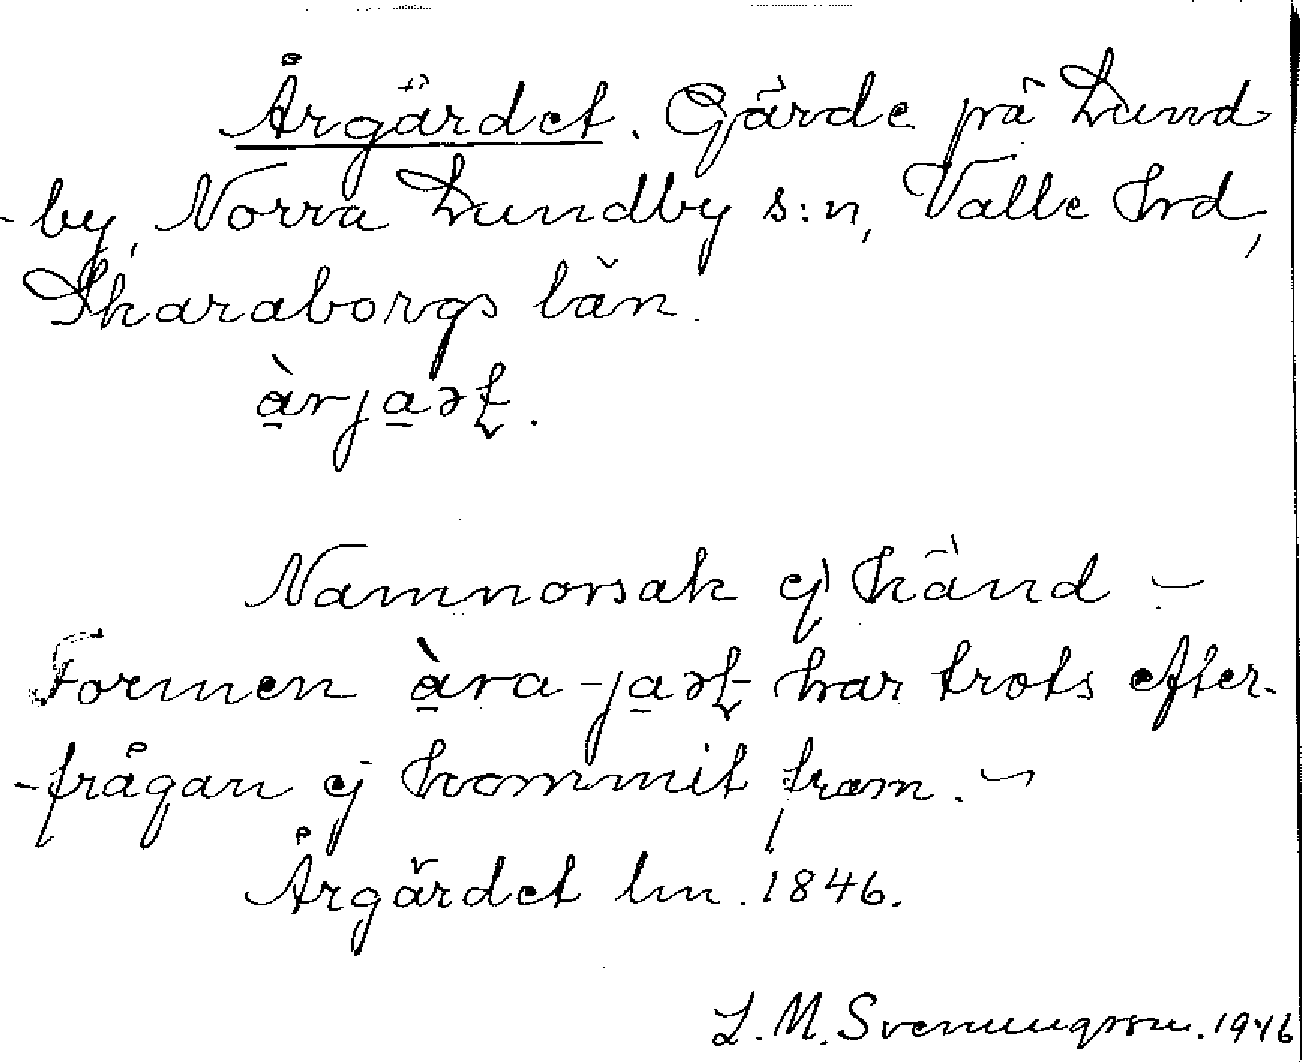 Årgärdet. Gärde på Lund-
-by, Norra Lundby s:n, Valle hrd,
Skaraborgs län.
àrjaət.
Namnorsak ej känd –
Formen àra-jaət har trots efter-
-frågan ej kommit fram. –
Årgärdet lm. 1846.
L. M. Svenungsson. 1946